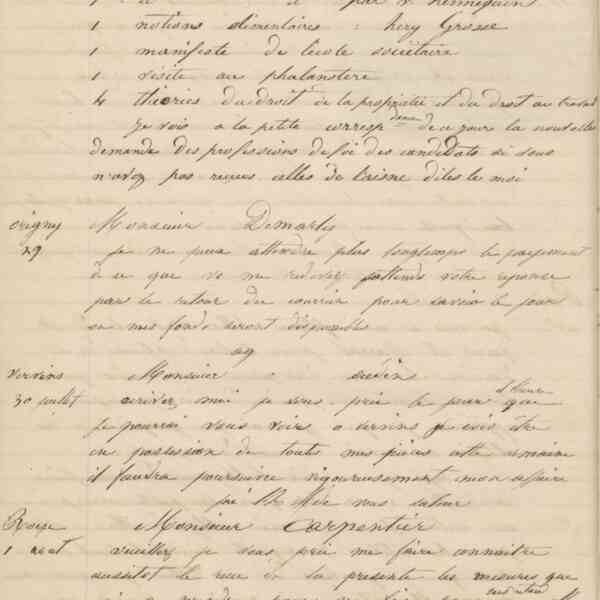 1 notions élémentaires : hery Grosse
1 manifeste de l'école sociétaire
1 visite au phalanstère
4 théories du droit de la propriété et du droit au travail
Je vois a la petite corresp dence de ce jour la nouvelle
demande des professions de foi des candidats si vous
n'avez pas reçues celles de l'aisne dites le moi
origny Monsieur Demarly
29 je ne peux attendre plus longtemps le payement
de ce que vs me redevez j'attends votre reponse
par le retour du courrier pour savoir le jour
ou mes fonds seront disponibles
ag
vervins Monsieur
30 juillet ecrivez moi je vous prie le jour que
l'heure
je pourrai vous voir a vervins je dois être
en possession de toutes mes pièces cette semaine
il faudra poursuivre rigoureusement mon affaire
de vous saluer
Monsieur Carpentier
1 aout veuillez je vous prie me faire connaitre
aussitot le reçu de la présente les mesures que